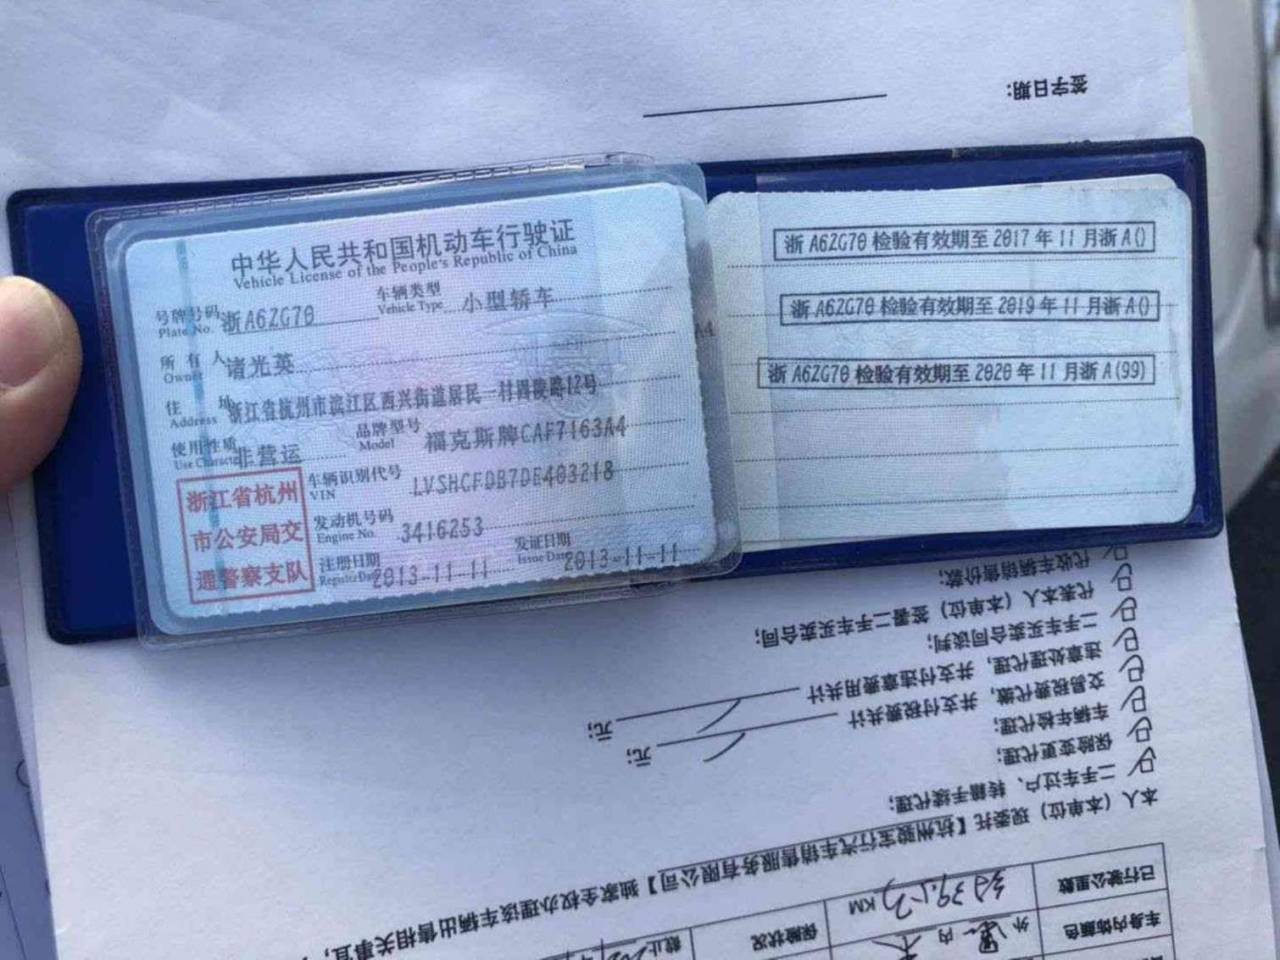 签字日期:
中华人民共和国机动车行驶证
Vehicle License of the People's Republic of China
号牌号码 浙A6ZG70 车辆类型 小型轿车
Plate No. Vehicle Type
所有人 诸光英
Owner
住址 浙江省杭州市滨江区西兴街道居民一村四陵路12号
Address
使用性质 非营运 品牌型号 福克斯牌CAF7163A4
Use Character Model
车辆识别代号 LVSHCFDB7DE403218
VIN
发动机号码 3416253
Engine No.
注册日期 2013-11-11 发证日期 2013-11-11
Register Date Issue Date
浙江省杭州
市公安局交
通警察支队
浙A6ZG70检验有效期至2017年11月浙A()
浙A6ZG70检验有效期至2019年11月浙A()
浙A6ZG70检验有效期至2020年11月浙A(99)
已行驶公里数 KM
车身内饰颜色 外 黑 内 保险状况 截止
本人(本单位)现委托【杭州骏宝行汽车销售服务有限公司】独家全权办理该车辆出售相关事宜,
二手车过户、转籍手续代理;
保险变更代理;
车辆年检代理;
交易税费代缴,并支付税费共计 元;
违章处理代理,并支付违章费用共计 元;
二手车买卖合同谈判;
代表本人(本单位)签署二手车买卖合同;
代收车辆销售价款;